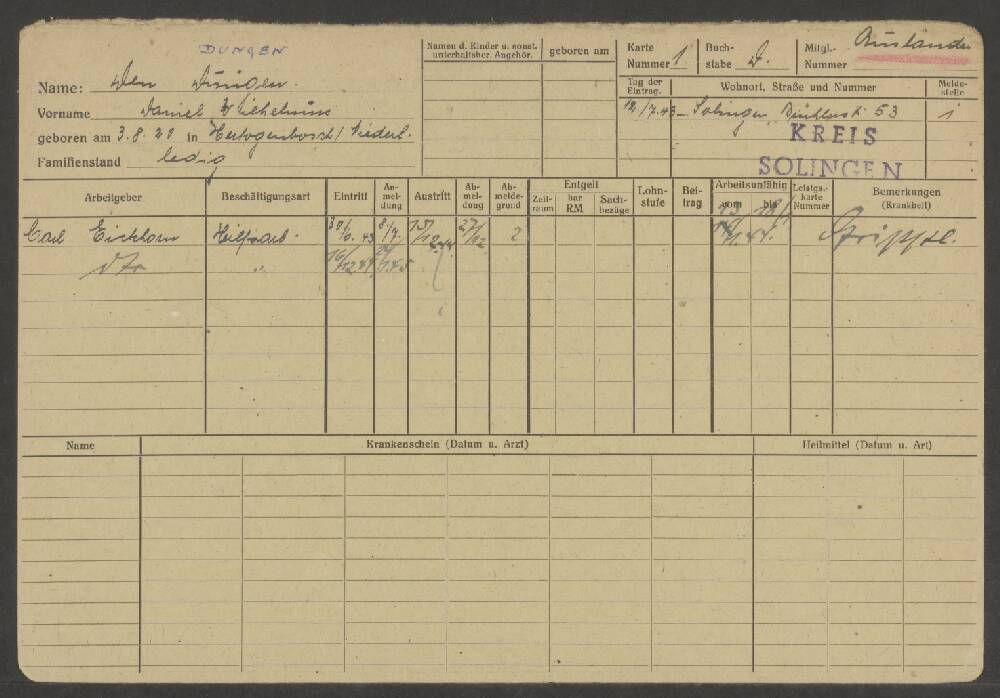 DUNGEN
Name: den Dungen.
Vorname Daniel Wilhelmus
geboren am 3.8.21 in Hertogenbosch/Niederl.
Familienstand ledig
Namen d. Kinder u. sonst. unterhaltsber. Angehör. geboren am
Karte Nummer 1 Buchstabe D. Mitgl.-Nummer Ausländer
Tag der Eintrag. Wohnort, Straße und Nummer Meldestelle
12/7.43 Solingen 53 1
KREIS
SOLINGEN
Arbeitgeber Beschäftigungsart Eintritt Anmeldung Austritt Abmeldung Abmeldegrund Entgelt Zeitraum bar RM Sachbezüge Lohnstufe Beitrag Arbeitsunfähig vom bis Leistgs.karte Nummer Bemerkungen (Krankheit)
Carl Eickhorn Hilfsarb. 30/6.43 8/7. 27/12 2 Grippe.
dto " 16/12.44
Name Krankenschein (Datum u. Arzt) Heilmittel (Datum u. Art)